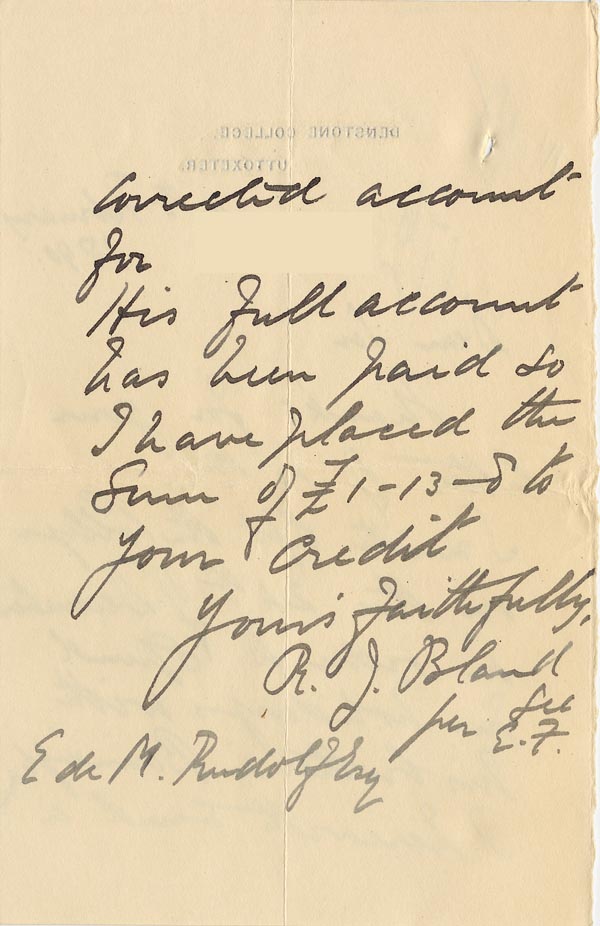 DENSTONE COLLEGE.
UTTOXETER.
Corrected account
for
His full account
has been paid so
I have placed the
Sum of £1-13-8 to
your credit
Yours faithfully,
R. J. Bland
per Sec
E. F.
E de M. Rudolf Esq